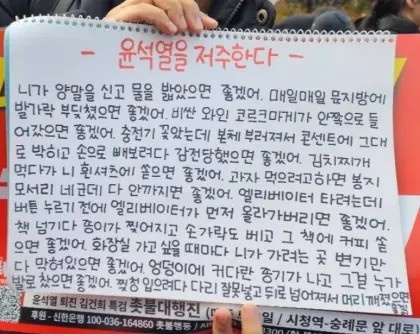 - 윤석열을 저주한다 -
니가 양말을 신고 물을 밟았으면 좋겠어. 매일매일 문지방에
발가락 부딪쳤으면 좋겠어. 비싼 와인 코르크마개가 안쪽으로 들
어갔으면 좋겠어. 충전기 꽂았는데 본체 부러져서 콘센트에 그대
로 박히고 손으로 빼보려다 감전당했으면 좋겠어. 김치찌개
먹다가 니 흰셔츠에 쏟으면 좋겠어. 과자 먹으려고하면 봉지
모서리 네군데 다 안까지면 좋겠어. 엘리베이터 타려는데
버튼 누르기 전에 엘리베이터가 먼저 올라가버리면 좋겠어.
책 넘기다 종이 찢어지고 손가락도 베고 그 책에 커피 쏟
으면 좋겠어. 화장실 가고 싶을 때마다 니가 가려는 곳 변기만
다 막혀있으면 좋겠어. 엉덩이에 커다란 종기가 나고 그걸 누가
발로 찼으면 좋겠어. 찢청 입으려다 다리 잘못넣고 뒤로 넘어져서 머리 깨졌으면
윤석열 퇴진 김건희 특검 촛불대행진
일 / 시청역-숭례문 앞 대로
후원 - 신한은행 100-036-164860 촛불행동